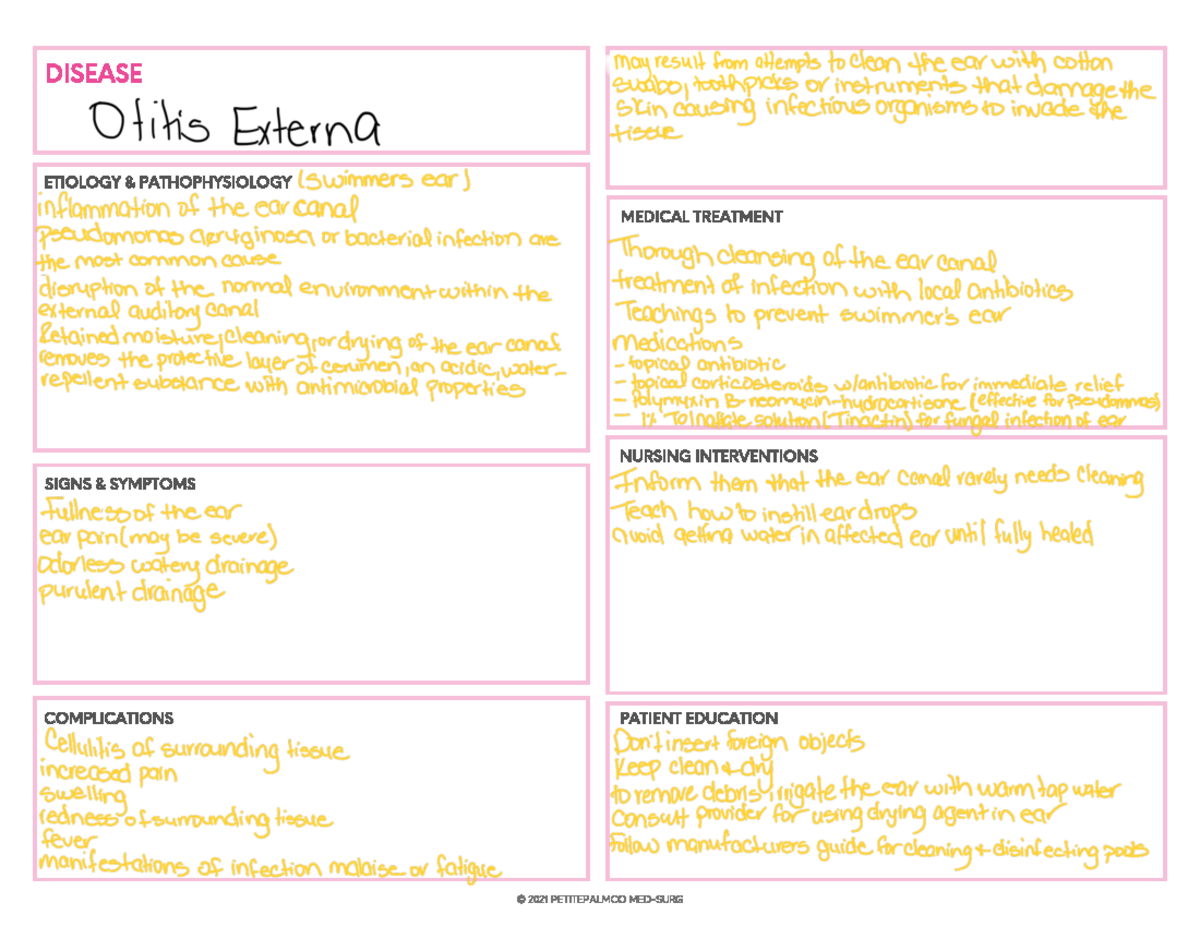 DISEASE
Otitis Externa
ETIOLOGY & PATHOPHYSIOLOGY (swimmers ear)
inflammation of the ear canal
pseudomonas aeruginosa or bacterial infection are
the most common cause
disruption of the normal environment within the
external auditory canal
Retained moisture, cleaning, or drying of the ear canal
removes the protective layer of cerumen, an acidic, water-
repellent substance with antimicrobial properties
SIGNS & SYMPTOMS
Fullness of the ear
ear pain (may be severe)
odorless watery drainage
purulent drainage
COMPLICATIONS
Cellulitis of surrounding tissue
increased pain
swelling
redness of surrounding tissue
fever
manifestations of infection malaise or fatigue
may result from attempts to clean the ear with cotton
swabs, toothpicks or instruments that damage the
skin causing infectious organisms to invade the
tissue
MEDICAL TREATMENT
Thorough cleansing of the ear canal
treatment of infection with local antibiotics
Teachings to prevent swimmer's ear
medications
- topical antibiotic
- topical corticosteroids w/antibiotic for immediate relief
- polymyxin B-neomycin-hydrocortisone (effective for pseudommas)
- 1% Tolnaftate solution (Tinactin) for fungal infection of ear
NURSING INTERVENTIONS
Inform them that the ear canal rarely needs cleaning
Teach how to instill ear drops
avoid getting water in affected ear until fully healed
PATIENT EDUCATION
Don't insert foreign objects
Keep clean + dry
to remove debris, irrigate the ear with warm tap water
Consult provider for using drying agent in ear
follow manufacturers guide for cleaning + disinfecting pools
© 2021 PETITEPALMCO MED-SURG